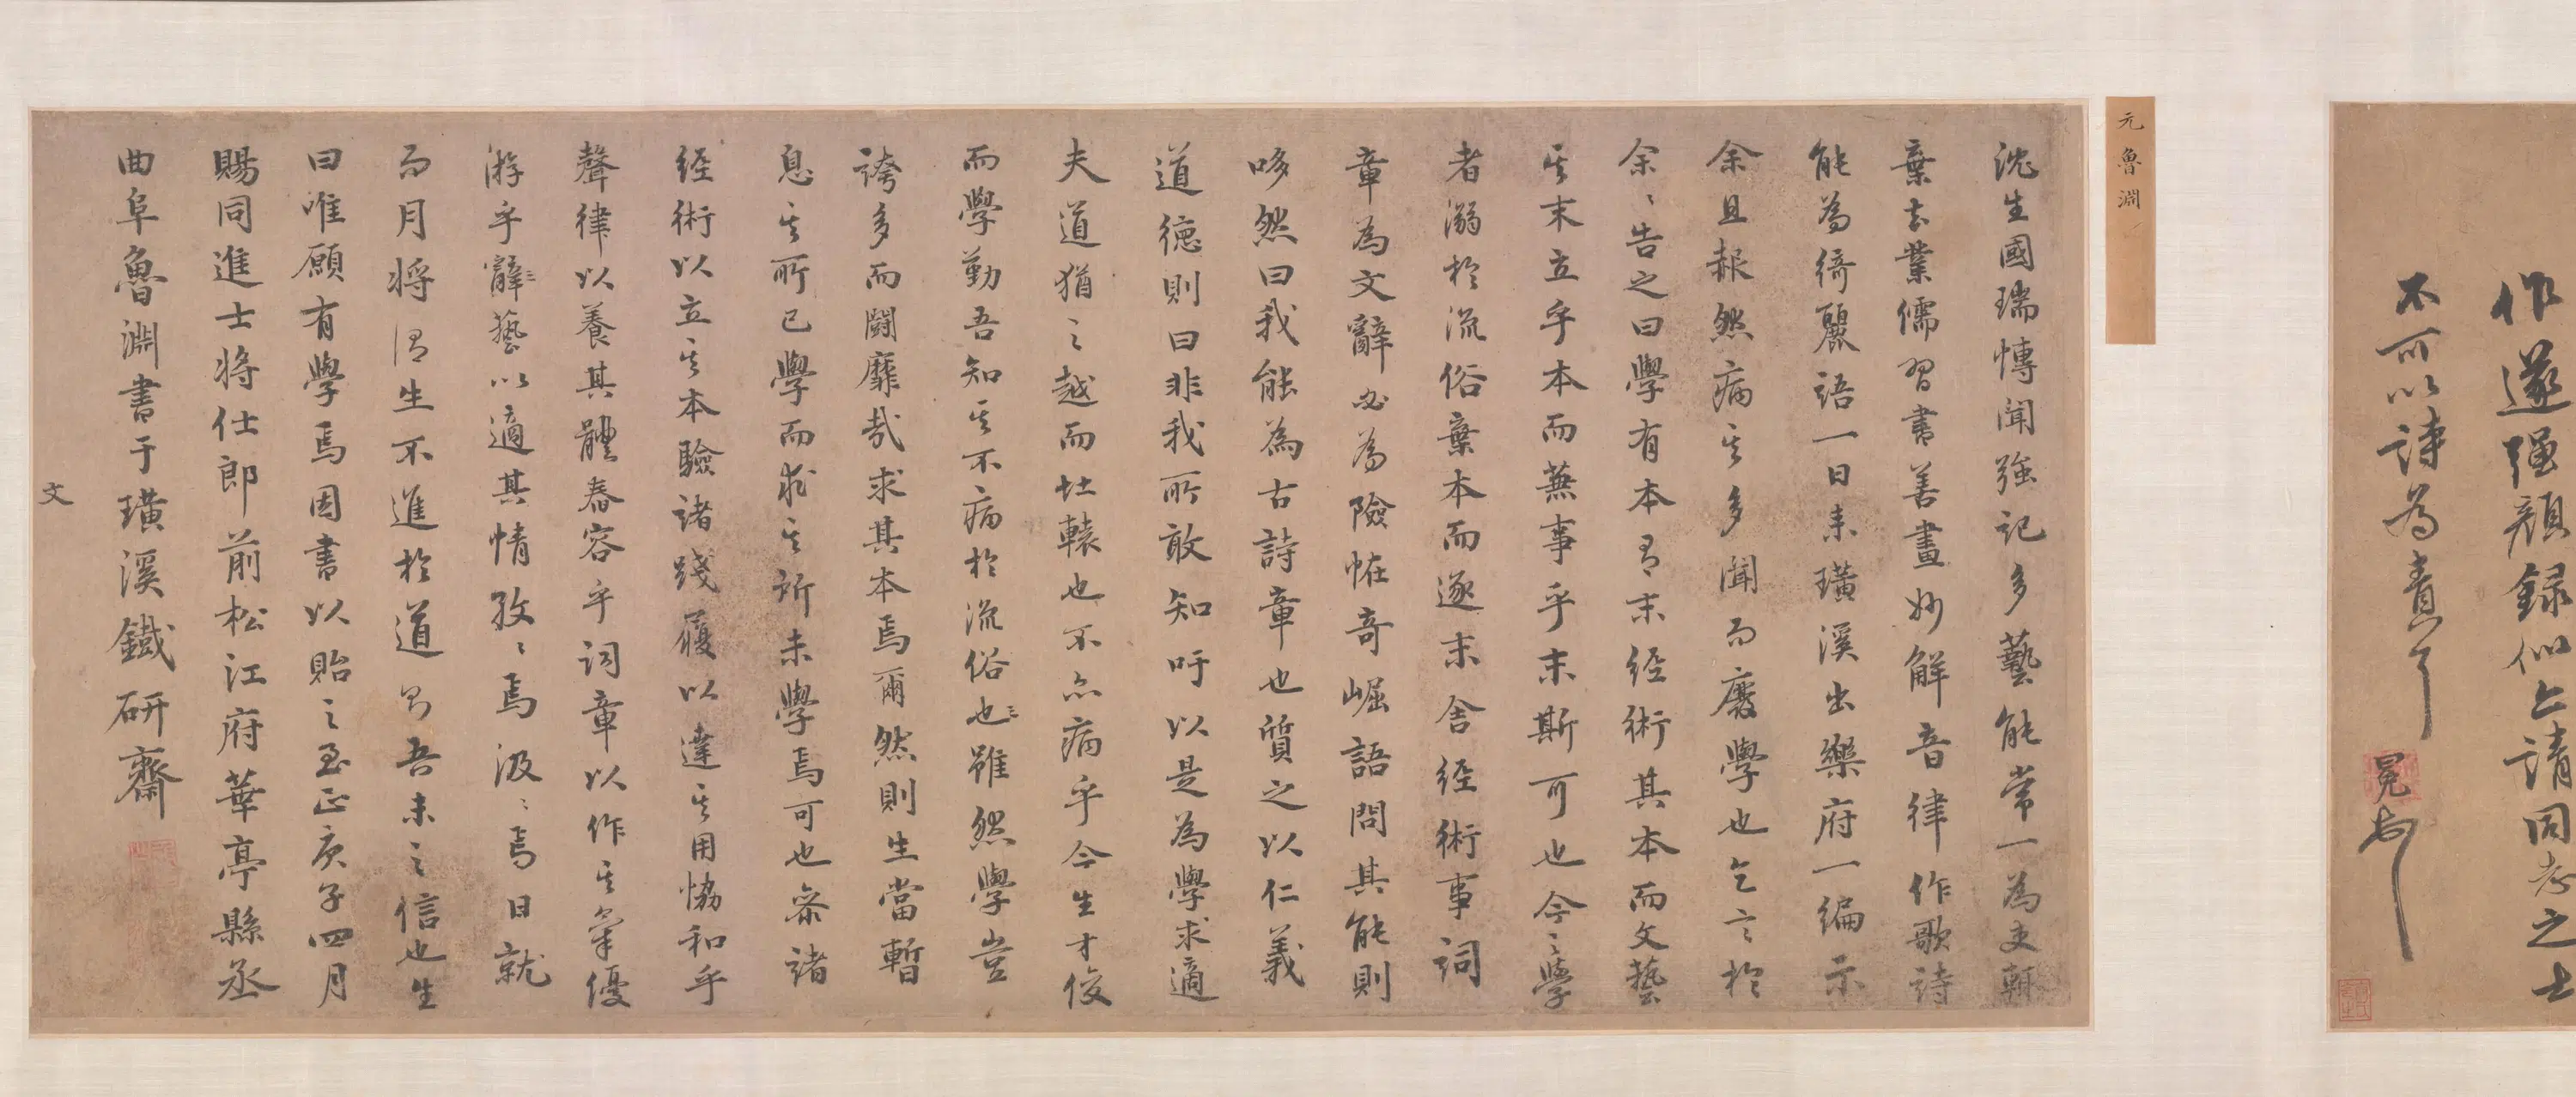 作遂強顔録似上請同志之士
不可以詩為責可
冕
元魯淵
沈生國瑞博聞強記多藝能常一為吏輒
棄去業儒習書善畫妙解音律作歌詩
能為綺麗語一日来璜溪出樂府一編示
余且赧然病其多聞而廢學也乞言於
余〻告之曰學有本有末經術其本而文藝
其末立乎本而兼事乎末斯可也今之學
者溺於流俗棄本而逐末舍經術事詞
章為文辭必為險恠奇崛語問其能則
哆然曰我能為古詩章也質之以仁義
道德則曰非我所敢知吁以是為學求適
夫道猶之越而北轅也不亦病乎今生才俊
而學勤吾知其不病於流俗也〻雖然學豈
誇多而鬭靡㢤求其本焉爾然則生當暫
息其所已學而求其所未學焉可也叅諸
經術以立其本驗諸踐履以達其用恊和乎
聲律以養其體舂容乎詞章以作其氣優
游乎辭〻藝以適其情孜〻焉汲〻焉日就
而月将謂生不進於道者吾未之信也生
曰唯願有學焉因書以貽之至正庚子四月
賜同進士将仕郎前松江府華亭縣丞
曲阜魯淵書于璜溪鐵研齋
文